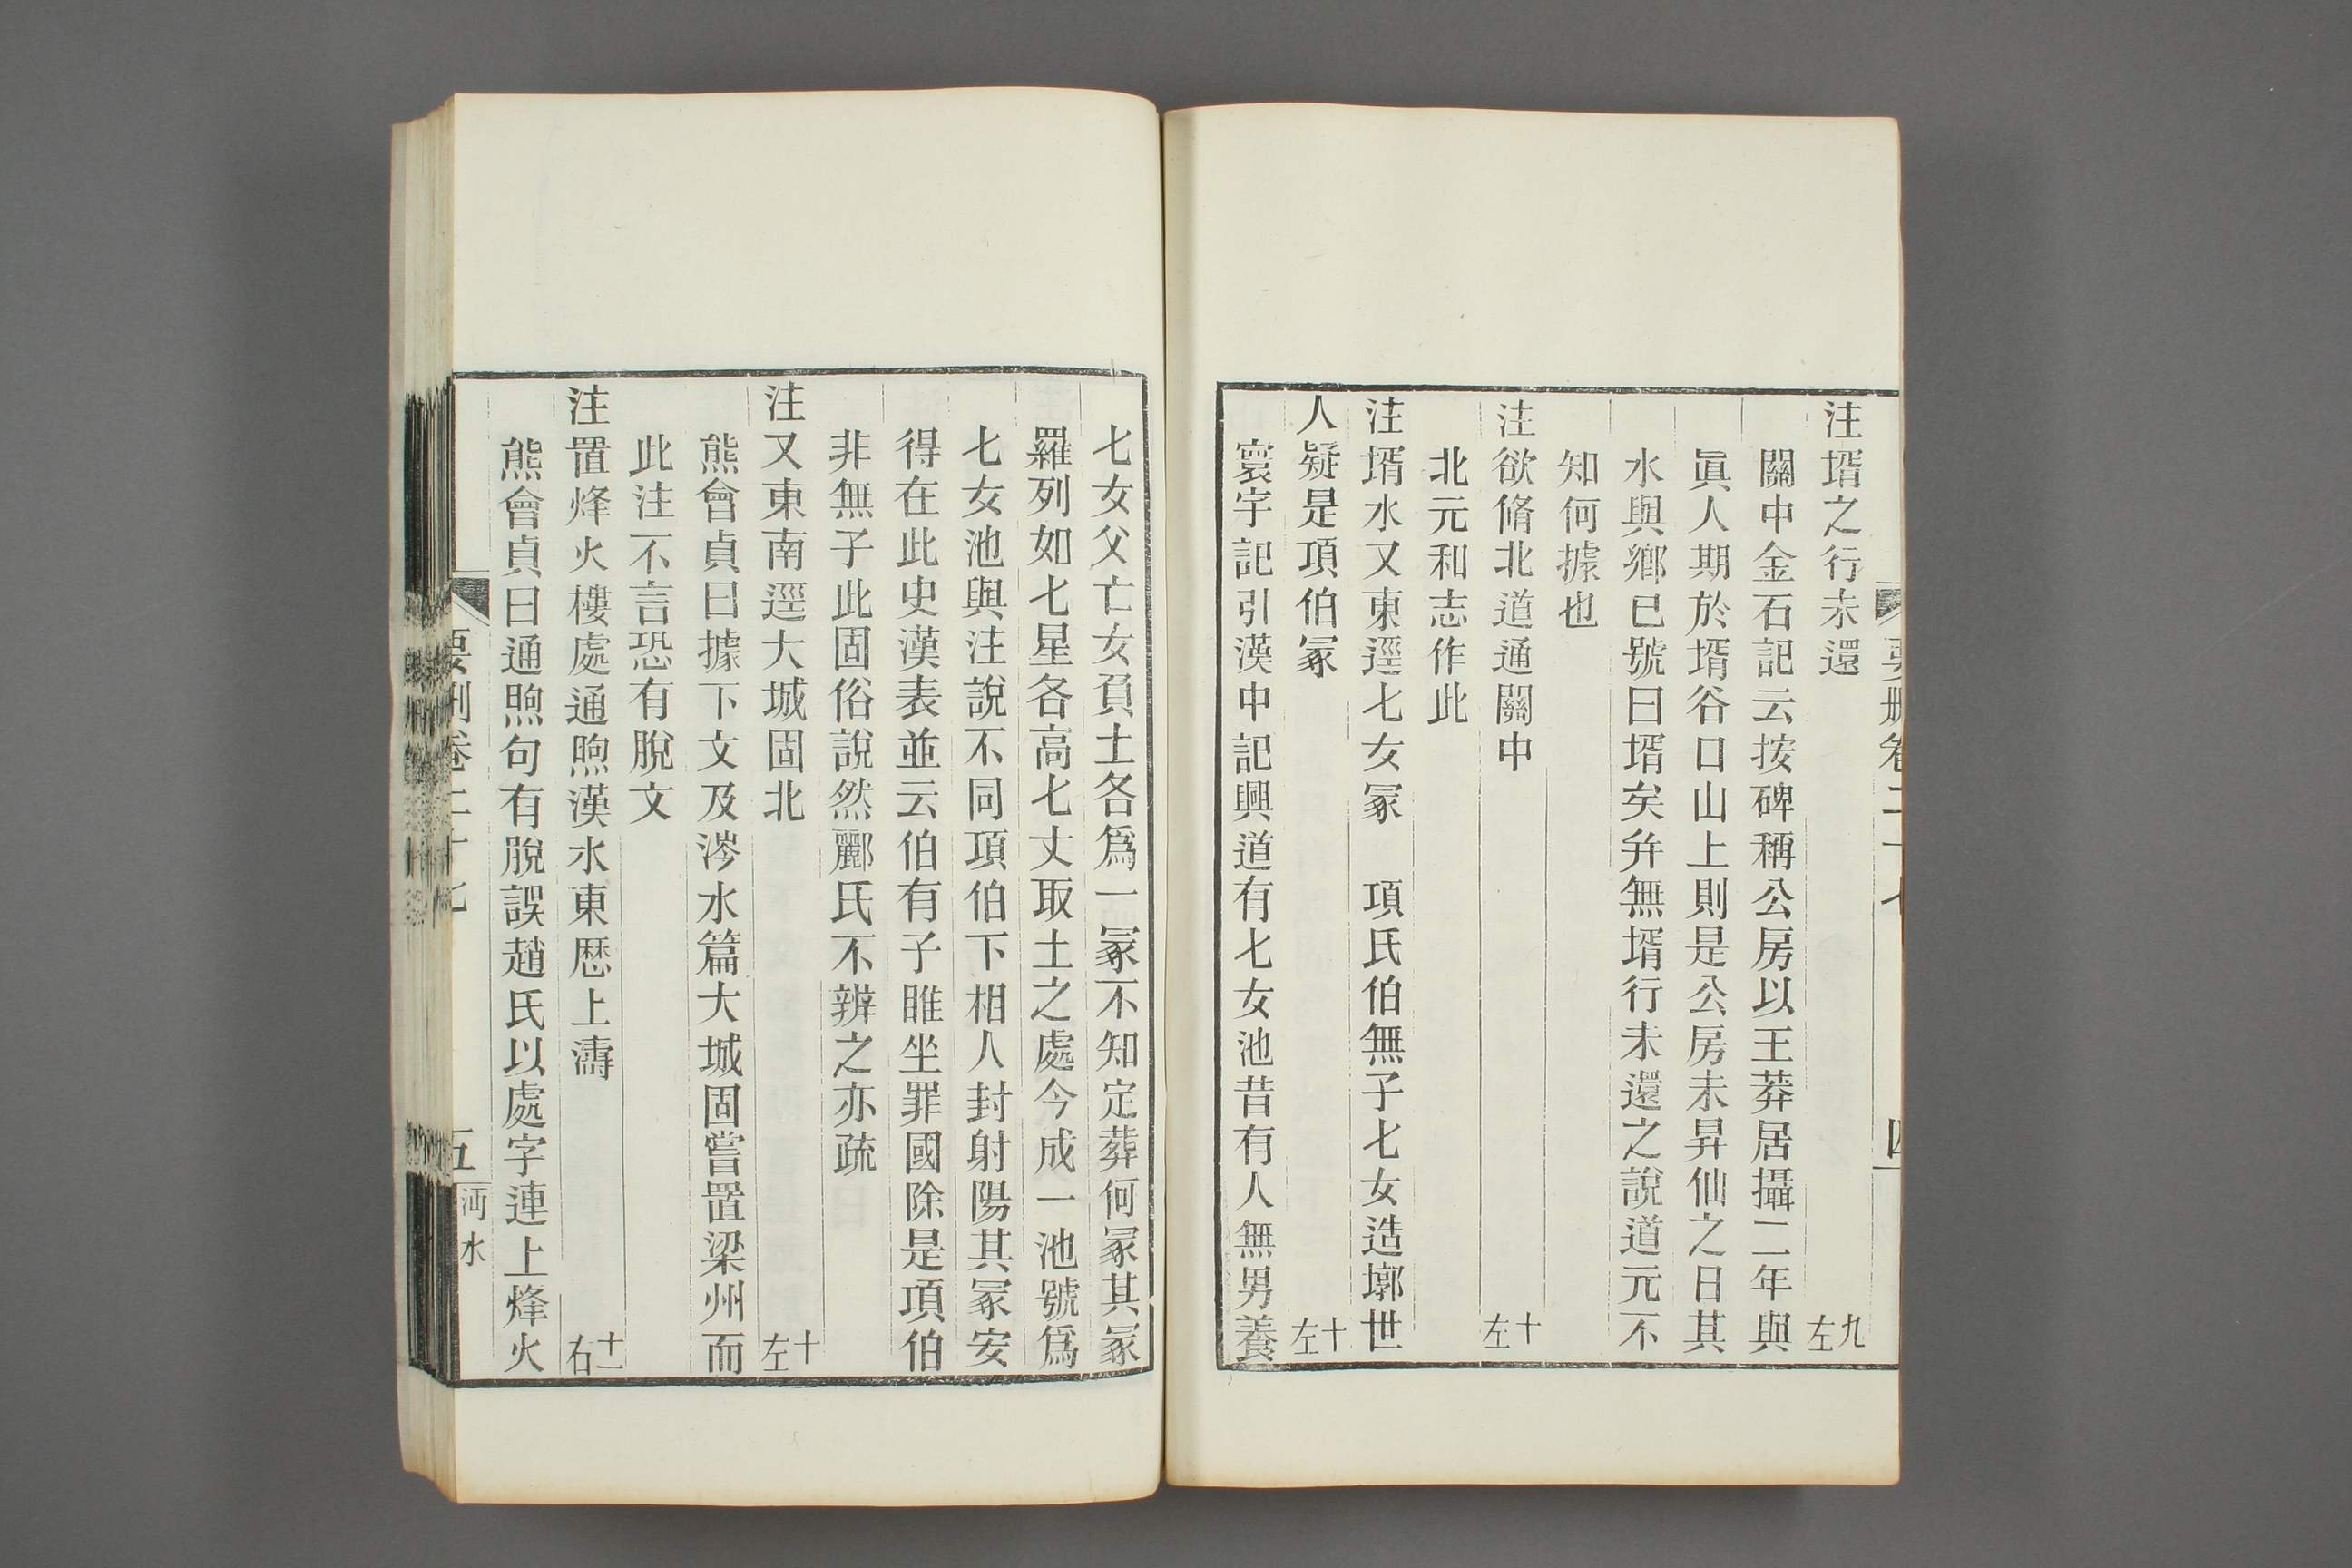 要刪卷二十七 四
注壻之行未還 九左
關中金石記云按碑稱公房以王莽居攝二年與
眞人期於壻谷口山上則是公房未昇仙之日其
水與鄉已號曰壻矣幷無壻行未還之說道元不
知何據也
注欲脩北道通關中 十左
北元和志作此
注壻水又東逕七女冢 項氏伯無子七女造墎世
人疑是項伯冢 十左
寰宇記引漢中記興道有七女池昔有人無男養
七女父亡女負土各爲一冢不知定葬何冢其冢
羅列如七星各高七丈取土之處今成一池號爲
七女池與注說不同項伯下相人封射陽其冢安
得在此史漢表並云伯有子睢坐罪國除是項伯
非無子此固俗說然酈氏不辨之亦疏
注又東南逕大城固北 十左
熊會貞曰據下文及涔水篇大城固嘗置梁州而
此注不言恐有脫文
注置烽火樓處通煦漢水東歷上濤 十一右
熊會貞曰通煦句有脫誤趙氏以處字連上烽火
要刪卷二十七 五 沔水